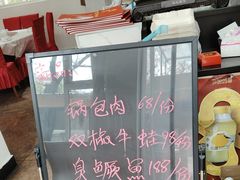 锅包肉 68/份
双椒牛蛙 98/份
臭鳜鱼 188/份